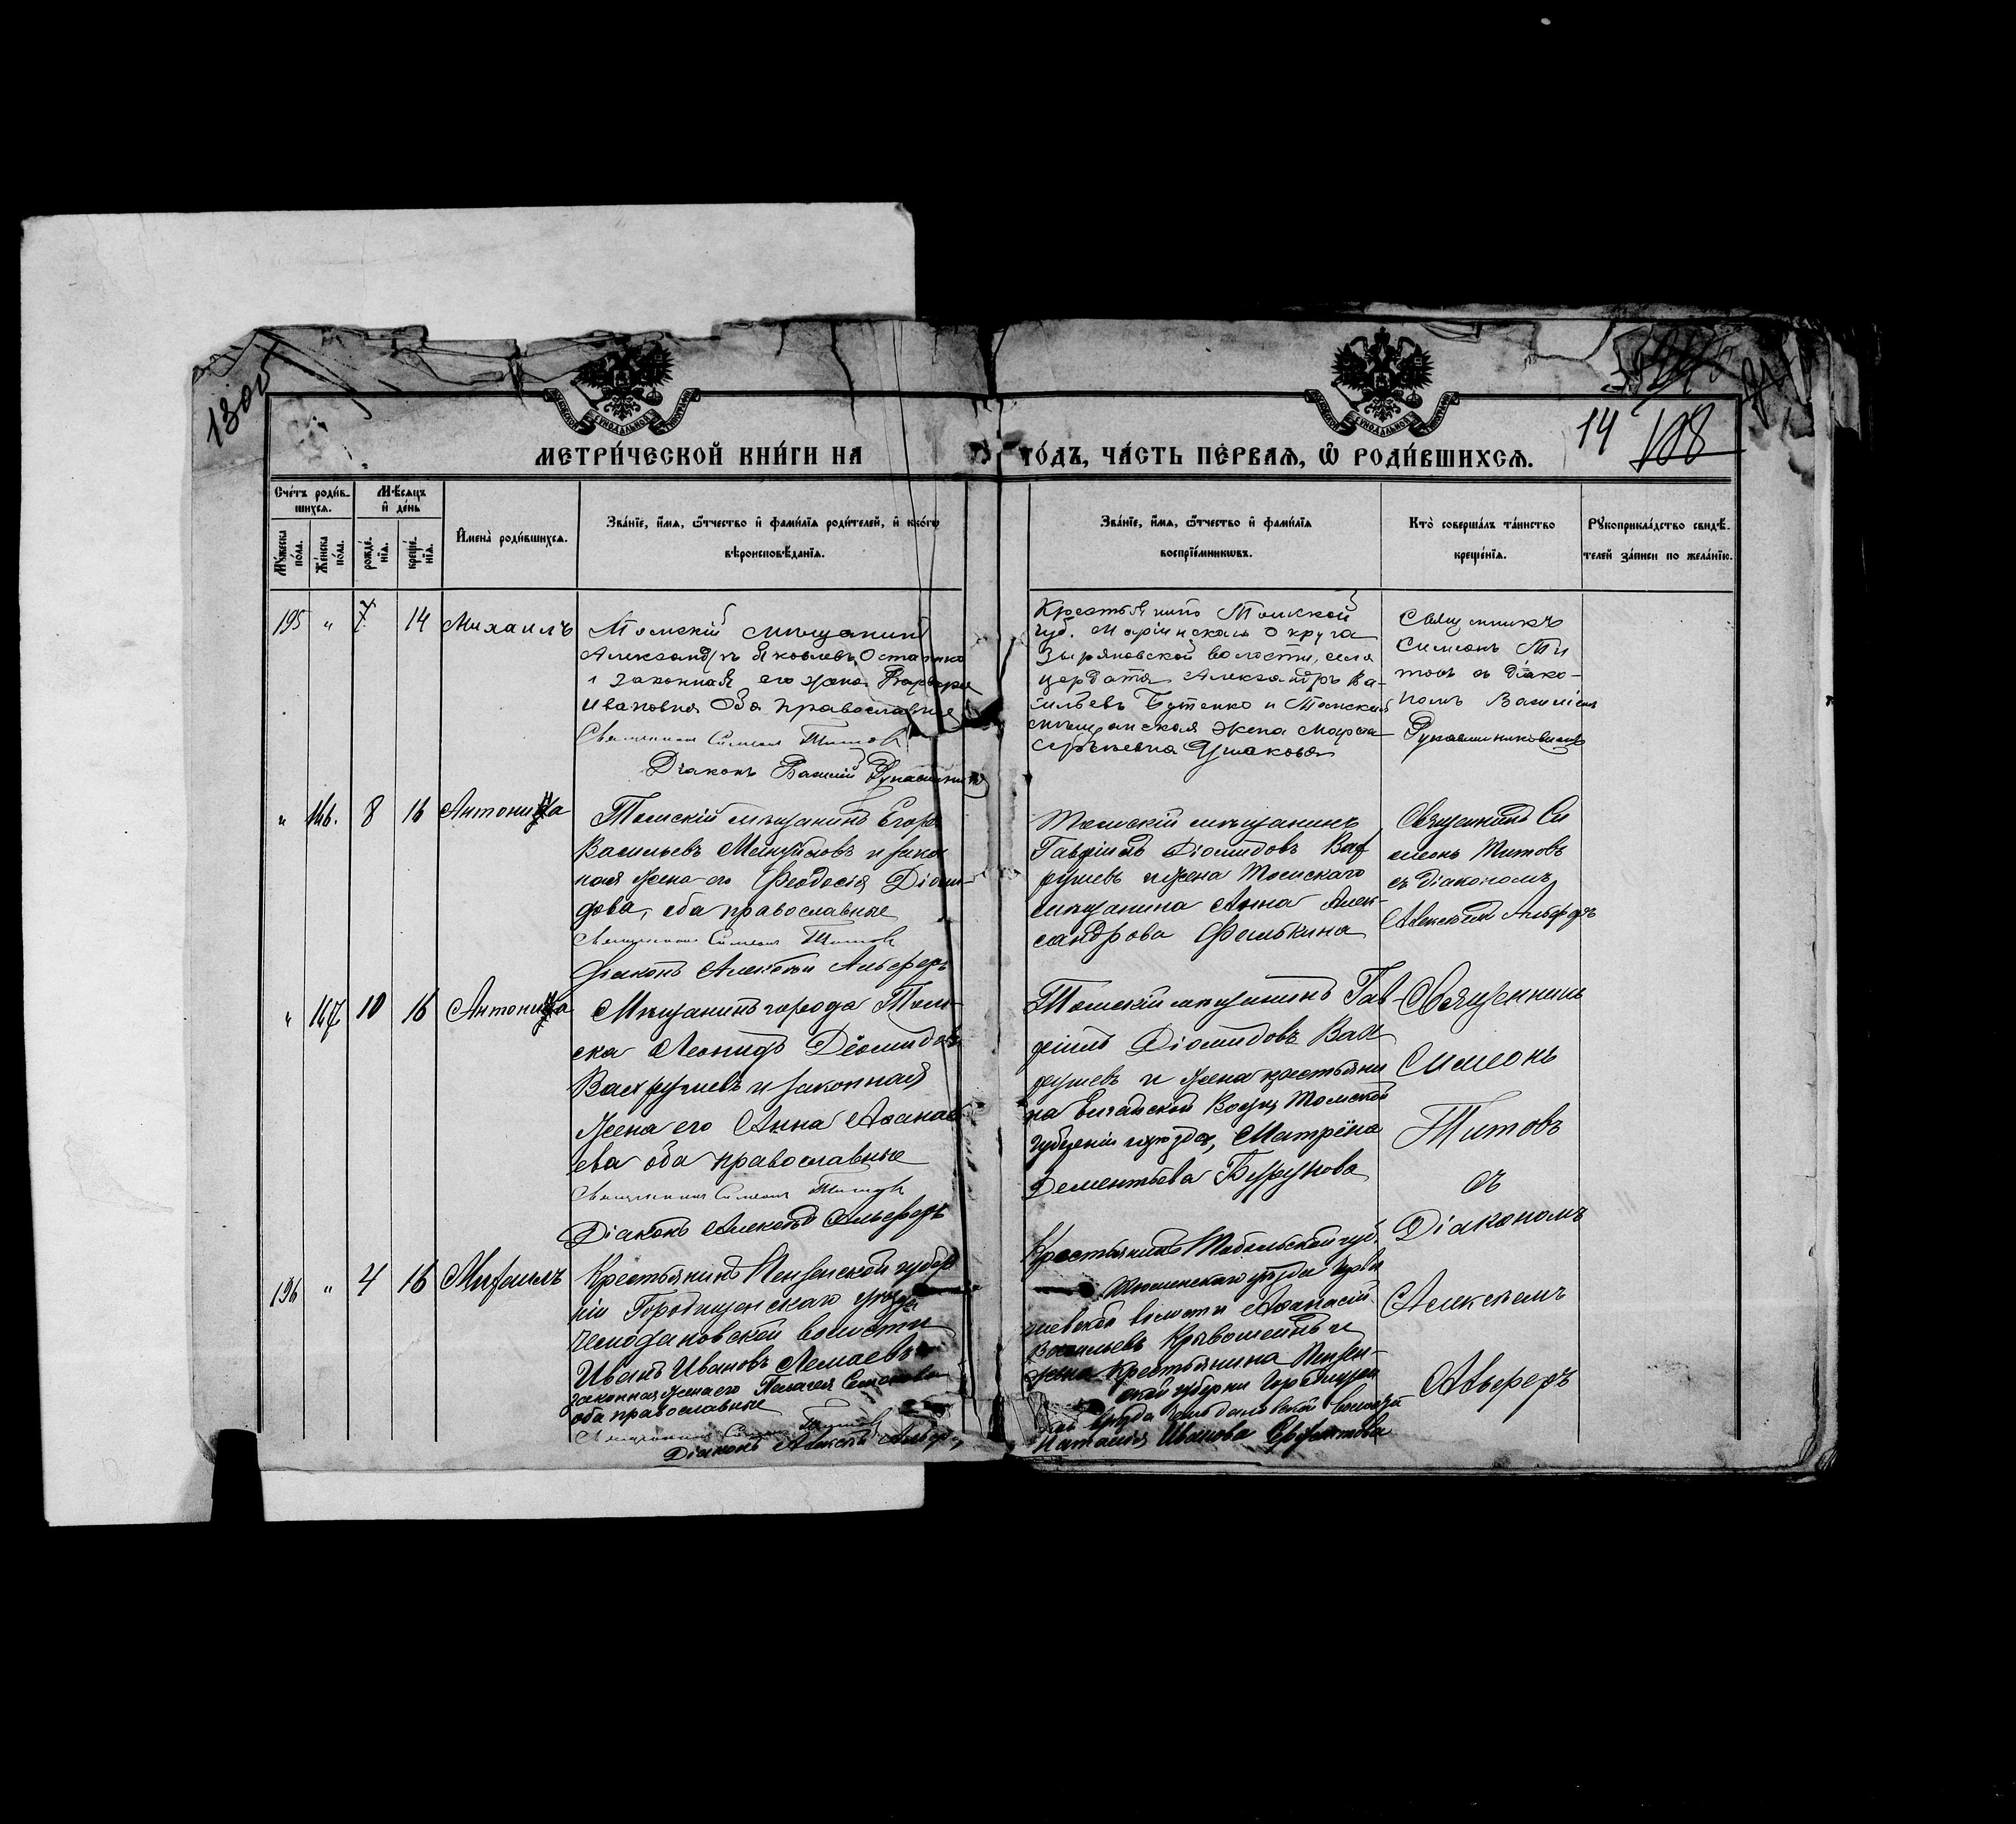 130об
14 108
МЕТРИ́ЧЕСКОЙ КНИ́ГИ НА
ГО́ДЪ, ЧА́СТЬ ПЕ́РВАѦ, Ѡ҆ РОДИ́ВШИХСѦ.
Сче́тъ роди́в-
шихсѧ.
Мѣ́сѧцъ
и҆ де́нь
Мꙋ́жеска по́ла.
Же́нска по́ла.
рожде́-
нїѧ.
креще́-
нїѧ.
И҆мена̀ роди́вшихсѧ.
Зва́нїе, и҆́мѧ, ѻ҆́тчество и҆ фами́лїѧ роди́телей, и҆ како́гѡ
вѣроисповѣ́данїѧ.
Зва́нїе, и҆́мѧ, ѻ҆́тчество и҆ фами́лїѧ
воспрїе́мникѡвъ.
Кто̀ соверша́лъ та́инство
креще́нїѧ.
Рꙋкоприкла́дство свидѣ́-
телей за́писи по жела́нїю.
195 " 7 14 Михаилъ
Томскій мѣщанинъ
Александръ Яковлевъ
и законная его жена Варвара
Ивановна Оба православные
Священникъ Симеонъ Титовъ
Діаконъ Василій Рукавишниковъ
Крестьянинъ Томской
губ. Маріинскаго Округа
Зыряновской волости, села
Александръ Ва-
сильевъ Бутенко и Томская
мѣщанская жена Марѳа
Сергѣевна Ушакова
Священникъ
Симеонъ Ти
товъ съ Діако-
номъ Василіемъ
Рукавишниковымъ
" 146. 8 16 Антонина
Томскій мѣщанинъ Егоръ
Васильевъ Мануйловъ и закон
ная жена его Ѳеодосія Діоми-
дова, оба православные
Священникъ Симеонъ Титовъ
Діаконъ Алексѣй Альферъ
Томскій мѣщанинъ
Гавріилъ Діомидовъ Вах
рушевъ и жена Томскаго
мѣщанина Анна Алек-
сандрова Фалькина
Священникъ Си
меонъ Титовъ
съ Діакономъ
Алексѣемъ Альферъ
" 147 10 16 Антонина
Мѣщанинъ города Том-
ска Леонидъ Діомидовъ
Вахрушевъ и законная
жена его Анна Аѳанась
ева оба православные
Священникъ Симеонъ Титовъ
Діаконъ Алексѣй Альферъ
Томскій мѣщанинъ Гав
ріилъ Діомидовъ Вах
рушевъ и жена крестьяни
на Томской
губерніи и уѣзда, Матрёна
Дементьева
Священникъ
Симеонъ
Титовъ
съ
Діакономъ
Алексѣемъ
Альферъ
196 " 4 16 Михаилъ
Крестьянинъ Пензенской губер
ніи Городищенскаго уѣзда
Чемодановской волости
Иванъ Ивановъ Лемаевъ
законная жена его Пелагея Семенова
оба православные
Священникъ Симеонъ Титовъ
Діаконъ Алексѣй Альферъ
Крестьянинъ Тобольской губ.
Тюменскаго уѣзда
волости Аѳанасій
Васильевъ Кривошеинъ и
жена Крестьянина Пензен-
ской губерніи Городищен
скаго уѣзда волости
Наталія Иванова